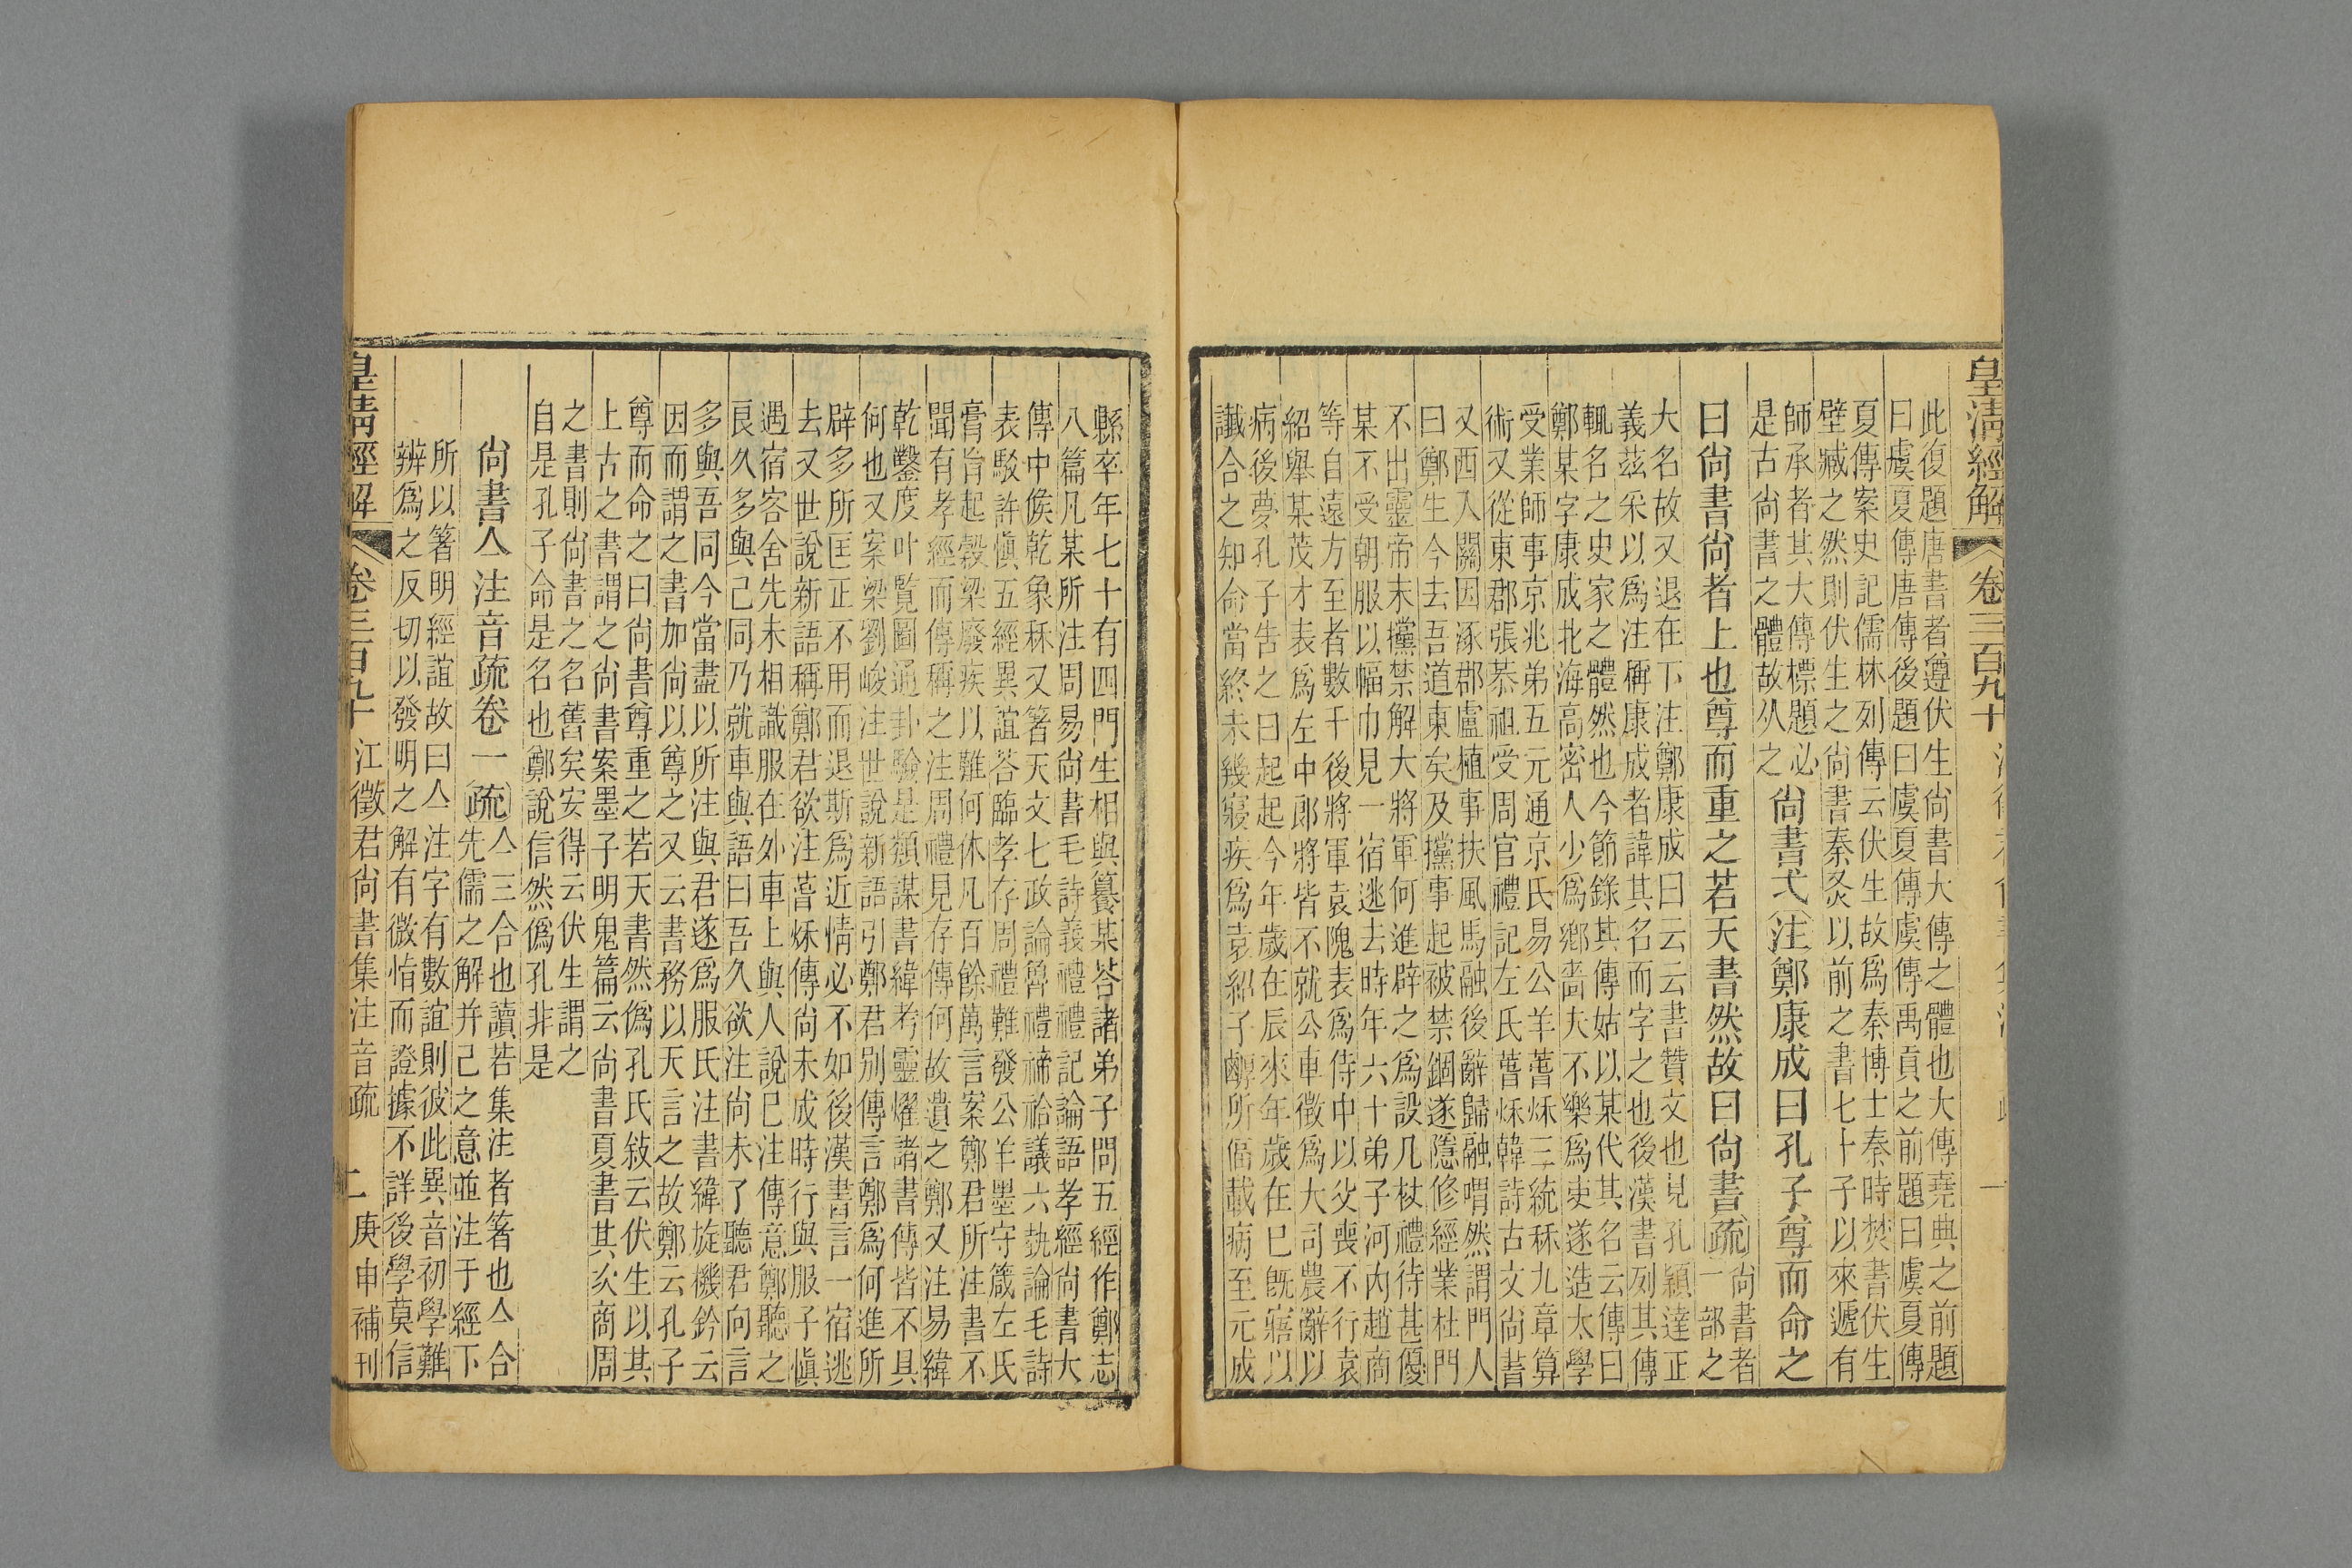 皇淸經解 卷三百九十
此復題唐書者遵伏生尙書大傳之體也大傳堯典之前題
曰虞夏傳唐傳後題曰虞夏傳虞傳禹貢之前題曰虞夏傳
夏傳案史記儒林列傳云伏生故爲秦博士秦時焚書伏生
壁臧之然則伏生之尙書秦㷊以前之書七十子以來遞有
師承者其大傳標題必
是古尙書之體故从之
尙書弌注鄭康成曰孔子尊而命之
曰尙書尙者上也尊而重之若天書然故曰尙書疏
尙書者
一部之
大名故又退在下注鄭康成曰云云書贊文也見孔穎達正
義茲采以爲注稱康成者諱其名而字之也後漢書列其傳
輒名之史家之體然也今節錄其傳姑以某代其名云傳曰
鄭某字康成北海高密人少爲鄉嗇夫不樂爲吏遂造太學
受業師事京兆弟五元通京氏易公羊萅秌三統秝九章算
術又從東郡張恭祖受周官禮記左氏萅秌韓詩古文尙書
又西入關因涿郡盧植事扶風馬融後辭歸融喟然謂門人
曰鄭生今去吾道東矣及黨事起被禁錮遂隱修經業杜門
不出靈帝末黨禁解大將軍何進辟之爲設几杖禮待甚優
某不受朝服以幅巾見一宿逃去時年六十弟子河內趙商
等自遠方至者數千後將軍袁隗表爲侍中以父喪不行袁
紹舉某茂才表爲左中郞將皆不就公車徵爲大司農辭以
病後夢孔子告之曰起起今年歲在辰來年歲在巳旣寤以
讖合之知命當終未幾寢疾爲袁紹子譚所偪載病至元成
縣卒年七十有四門生相與籑某荅諸弟子問五經作鄭志
八篇凡某所注周易尙書毛詩義禮禮記論語孝經尙書大
傳中侯乾象秝又箸天文七政論魯禮禘祫議六埶論毛詩
表駁許愼五經異誼荅臨孝存周禮難發公羊墨守箴左氏
膏肓起穀梁廢疾以難何休凡百餘萬言案鄭君所注書不
聞有孝經而傳稱之注周禮見存傳何故遺之鄭又注易緯
乾鑿度叶覧圖通卦驗是類謀書緯考靈燿諸書傳皆不具
何也又案梁劉峻注世說新語引鄭君別傳言鄭爲何進所
辟多所匡正不用而退斯爲近情必不如後漢書言一宿逃
去又世說新語稱鄭君欲注萅秌傳尙未成時行與服子愼
遇宿客舍先未相識服在外車上與人說己注傳意鄭聽之
良久多與己同乃就車與語曰吾久欲注尙未了聽君向言
多與吾同今當盡以所注與君遂爲服氏注書緯旋機鈐云
因而謂之書加尙以尊之又云書務以天言之故鄭云孔子
尊而命之曰尙書尊重之若天書然僞孔氏敍云伏生以其
上古之書謂之尙書案墨子明鬼篇云尙書夏書其次商周
之書則尙書之名舊矣安得云伏生謂之
自是孔子命是名也鄭說信然僞孔非是
尙書亼注音疏卷一疏
亼三合也讀若集注者箸也亼合
先儒之解并己之意並注于經下
所以箸明經誼故曰亼注字有數誼則彼此異音初學難
辨爲之反切以發明之解有微恉而證據不詳後學莫信
皇淸經解 卷三百九十 江徵君尙書集注音疏 二 庚申補刊